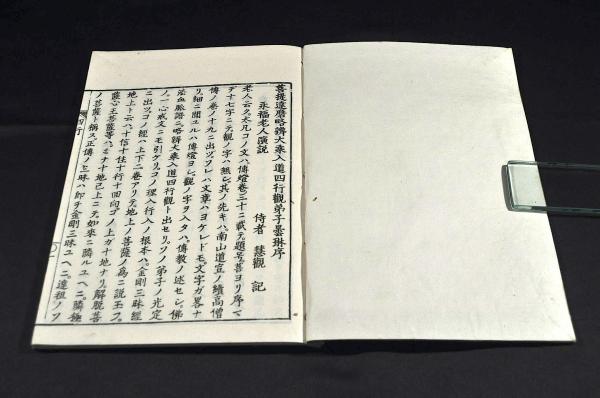 菩提達磨略辨大乘入道四行觀弟子曇琳序
永福老人演説
侍者 慧觀 記
老人云ク大凡コノ文ハ傳燈卷三十ニ載テ題号ハ菩ヨリ序マ
デ十七字ニテ觀ノ字ハ無シ其ノ先キハ南山道宣ノ續高僧
傳ノ卷ノ十九ニ出ヅソレハ文章ハヨケレドモ文字ガ畧ナ
リ細ニ圖ユルハ傳燈ヨシ觀ノ字ヲ入タハ傳教ノ述セシ佛
法血脉譜ニ略辨大乘入道四行觀ト出セリソノ弟子ノ光定
ノ一心戒文ニモ引ケリコノ理入行入ノ根本ハ金剛三昧經
ニ出ヅコノ經ハ上下二卷アリテ地上ノ菩薩ノ爲ニ説玉フ
地上ト云ハ十信十住十行十回向コノ上ガ十地ナリ解脱菩
薩心王菩薩等ハミナ十地已上ニテ如來ニ隣ルユヘニ隣極
ノ菩薩ト稱ス正傳ノ三昧ハ即チ金剛三昧ユヘニ遠祖ノヲ
四行